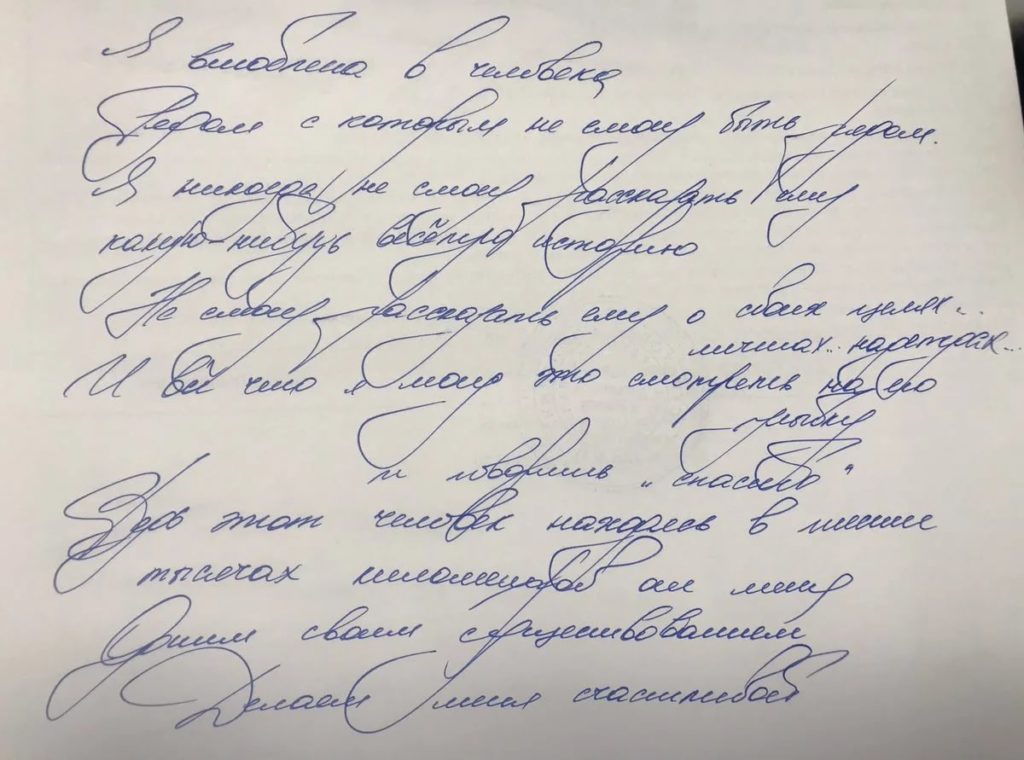 Я влюблена в человека
Рядом с которым не смогу быть рядом.
Я никогда не смогу рассказать ему
какую-нибудь весёлую историю
Не смогу рассказать ему о своих целях..
мечтах..
И всё что я могу это смотреть на его
улыбку
и говорить „спасибо“
Ведь этот человек находясь в
тысячах километров от меня
Одним своим существованием
Делает меня счастливой